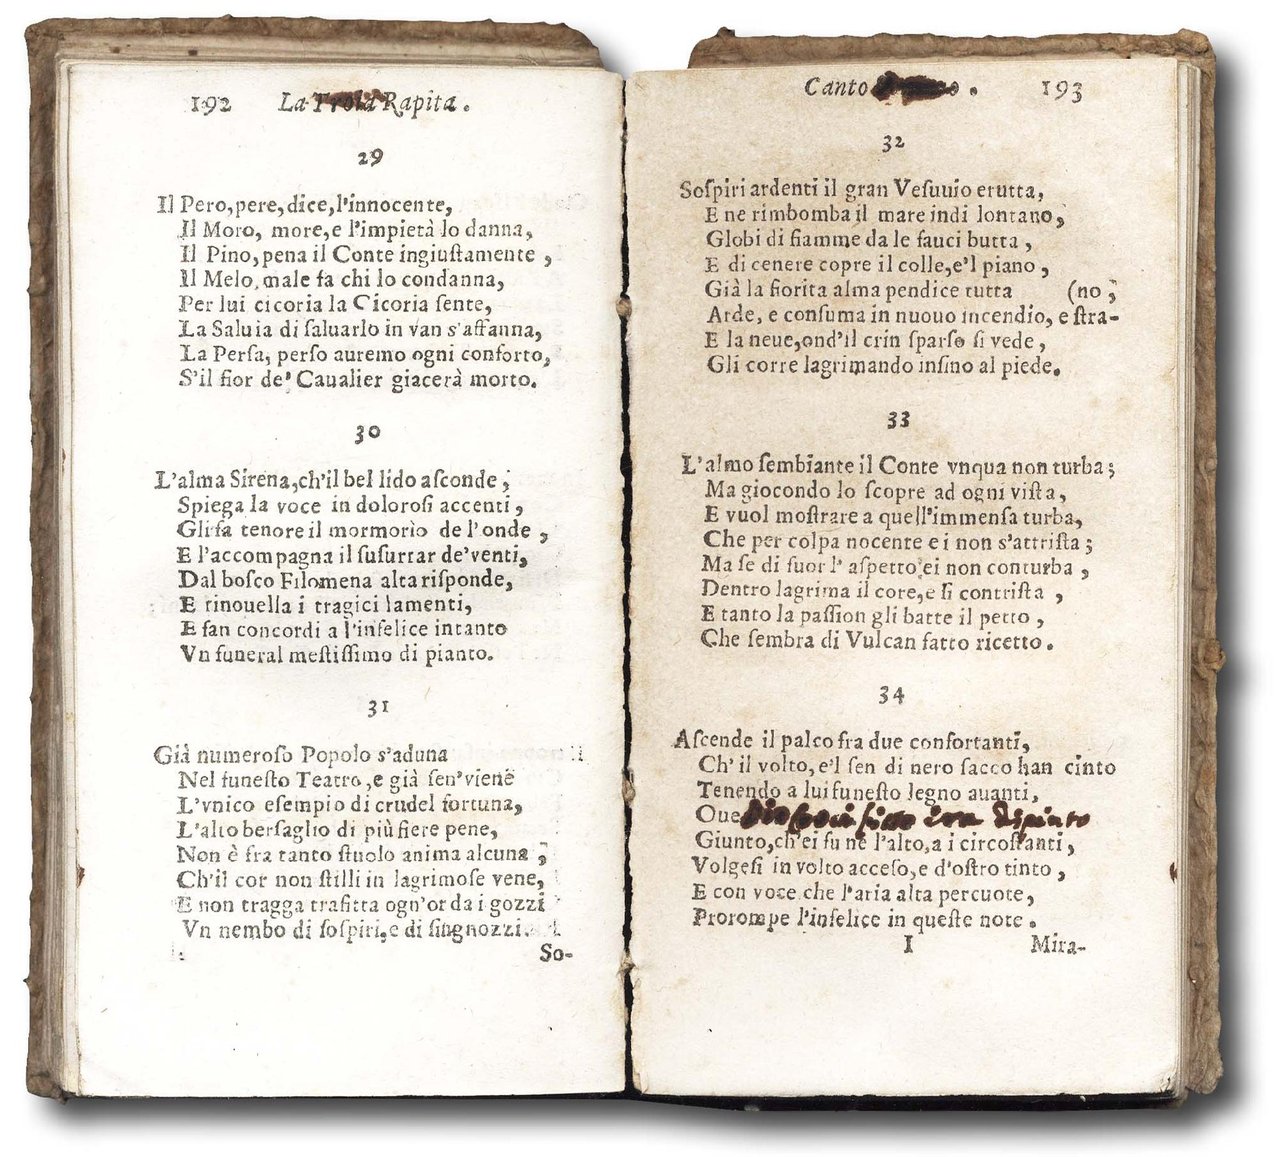 192 La Troia Rapita.
29
Il Pero, pere, dice, l'innocente,
Il Moro, more, e l'impietà lo danna,
Il Pino, pena il Conte ingiuſtamente,
Il Melo, male fa chi lo condanna,
Per lui cicoria la Cicoria ſente,
La Saluia di ſaluarlo in van s'affanna,
La Perſa, perſo auremo ogni conforto,
S'il fior de' Caualier giacerà morto.
30
L'alma Sirena, ch'il bel lido aſconde;
Spiega la voce in doloroſi accenti,
Gli fa tenore il mormorio de l'onde,
E l'accompagna il ſuſurrar de' venti,
Dal boſco Filomena alta riſponde,
E rinouella i tragici lamenti,
E fan concordi a l'infelice intanto
Vn funeral meſtiſſimo di pianto.
31
Già numeroſo Popolo s'aduna
Nel funeſto Teatro, e già ſen' viene
L'vnico eſempio di crudel fortuna,
L'alto berſaglio di più fiere pene,
Non è fra tanto ſtuolo anima alcuna;
Ch'il cor non ſtilli in lagrimoſe vene,
E non tragga trafitta ogn'or da i gozzi
Vn nembo di ſoſpiri, e di ſingnozzi.
So-
Canto 193
32
Soſpiri ardenti il gran Veſuuio erutta,
E ne rimbomba il mare indi lontano,
Globi di fiamme da le fauci butta,
E di cenere copre il colle, e'l piano,
Già la fiorita alma pendice tutta (no;
Arde, e conſuma in nuouo incendio, e ſtra-
E la neue, ond'il crin ſparſo ſi vede,
Gli corre lagrimando inſino al piede.
33
L'almo ſembiante il Conte vnqua non turba;
Ma giocondo lo ſcopre ad ogni viſta,
E vuol moſtrare a quell'immenſa turba,
Che per colpa nocente ei non s'attriſta;
Ma ſe di fuor l'aſpetto ei non conturba,
Dentro lagrima il core, e ſi contriſta,
E tanto la paſſion gli batte il petto,
Che ſembra di Vulcan fatto ricetto.
34
Aſcende il palco fra due confortanti,
Ch' il volto, e'l ſen di nero ſacco han cinto
Tenendo a lui funeſto legno auanti,
Oue era dipinto
Giunto, ch'ei fu ne l'alto, a i circoſtanti,
Volgeſi in volto acceſo, e d'oſtro tinto,
E con voce che l'aria alta percuote,
Prorompe l'infelice in queſte note.
I Mira-